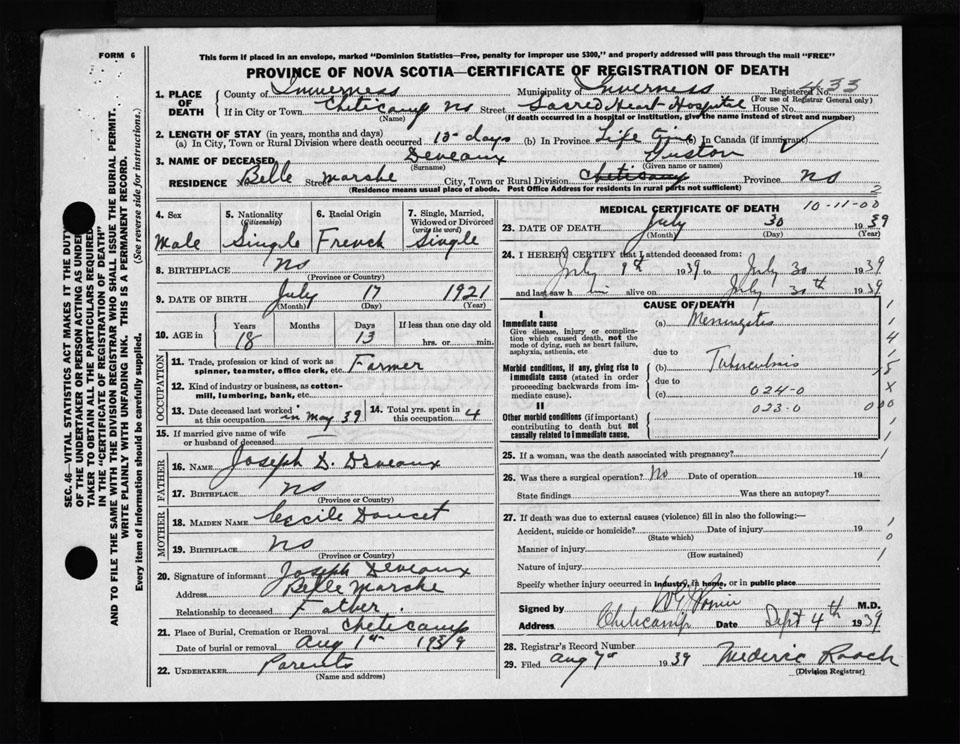 FORM 6
This form if placed in an envelope, marked "Dominion Statistics—Free, penalty for improper use $300," and properly addressed will pass through the mail "FREE"
PROVINCE OF NOVA SCOTIA—CERTIFICATE OF REGISTRATION OF DEATH
SEC. 46—VITAL STATISTICS ACT MAKES IT THE DUTY
OF THE UNDERTAKER OR PERSON ACTING AS UNDER
TAKER TO OBTAIN ALL THE PARTICULARS REQUIRED
IN THE "CERTIFICATE OF REGISTRATION OF DEATH"
AND TO FILE THE SAME WITH THE DIVISION REGISTRAR WHO SHALL ISSUE THE BURIAL PERMIT.
WRITE PLAINLY WITH UNFADING INK. THIS IS A PERMANENT RECORD.
Every item of information should be carefully supplied. (See reverse side for instructions.)
1. PLACE OF DEATH County of Inverness Municipality of Inverness Registered No. 433
(For use of Registrar General only)
If in City or Town Cheticamp NS Street Sacred Heart Hospital House No.
(Name) (If death occurred in a hospital or institution, give the name instead of street and number)
2. LENGTH OF STAY (in years, months and days)
(a) In City, Town or Rural Division where death occurred 13 days (b) In Province Life Time (c) In Canada (if immigrant)
3. NAME OF DECEASED Deveaux Guston
(Surname) (Given name or names)
RESIDENCE Belle Street Marche City, Town or Rural Division Cheticamp Province NS
(Residence means usual place of abode. Post Office Address for residents in rural parts not sufficient) 2
4. Sex Male
5. Nationality (Citizenship) Single
6. Racial Origin French
7. Single, Married, Widowed or Divorced (write the word) Single
8. BIRTHPLACE NS
(Province or Country)
9. DATE OF BIRTH July 17 1921
(Month) (Day) (Year)
10. AGE in Years 18 Months Days 13 If less than one day old
hrs. or min.
OCCUPATION
11. Trade, profession or kind of work as spinner, teamster, office clerk, etc. Farmer
12. Kind of industry or business, as cotton-mill, lumbering, bank, etc.
13. Date deceased last worked at this occupation in May 39 14. Total yrs. spent in this occupation 4
15. If married give name of wife or husband of deceased
FATHER
16. NAME Joseph D. Deveaux
17. BIRTHPLACE NS
(Province or Country)
MOTHER
18. MAIDEN NAME Cecile Doucet
19. BIRTHPLACE NS
(Province or Country)
20. Signature of informant Joseph Deveaux
Address Belle Marche
Relationship to deceased Father.
21. Place of Burial, Cremation or Removal Cheticamp
Date of burial or removal Aug 1st 1939
22. UNDERTAKER Parents
(Name and address)
MEDICAL CERTIFICATE OF DEATH 10-11-00
23. DATE OF DEATH July 30 1939
(Month) (Day) (Year)
24. I HEREBY CERTIFY that I attended deceased from:
July 9th 1939 to July 30 1939
and last saw h im alive on July 30th 1939
CAUSE OF DEATH
I
Immediate cause
Give disease, injury or complication which caused death, not the mode of dying, such as heart failure, asphyxia, asthenia, etc
(a) Meningitis
due to
Morbid conditions, if any, giving rise to immediate cause (stated in order proceeding backwards from immediate cause).
(b) Tuberculosis
due to
(c) 024-0
II
023-0
Other morbid conditions (if important) contributing to death but not causally related to immediate cause.
25. If a woman, was the death associated with pregnancy?
26. Was there a surgical operation? No Date of operation 19
State findings Was there an autopsy?
27. If death was due to external causes (violence) fill in also the following:—
Accident, suicide or homicide? Date of injury 19
(State which)
Manner of injury
(How sustained)
Nature of injury
Specify whether injury occurred in industry, in home, or in public place
Signed by M.D.
Address Cheticamp Date Sept 4th 1939
28. Registrar's Record Number
29. Filed Aug 7th 1939 Mederic Roach
(Division Registrar)